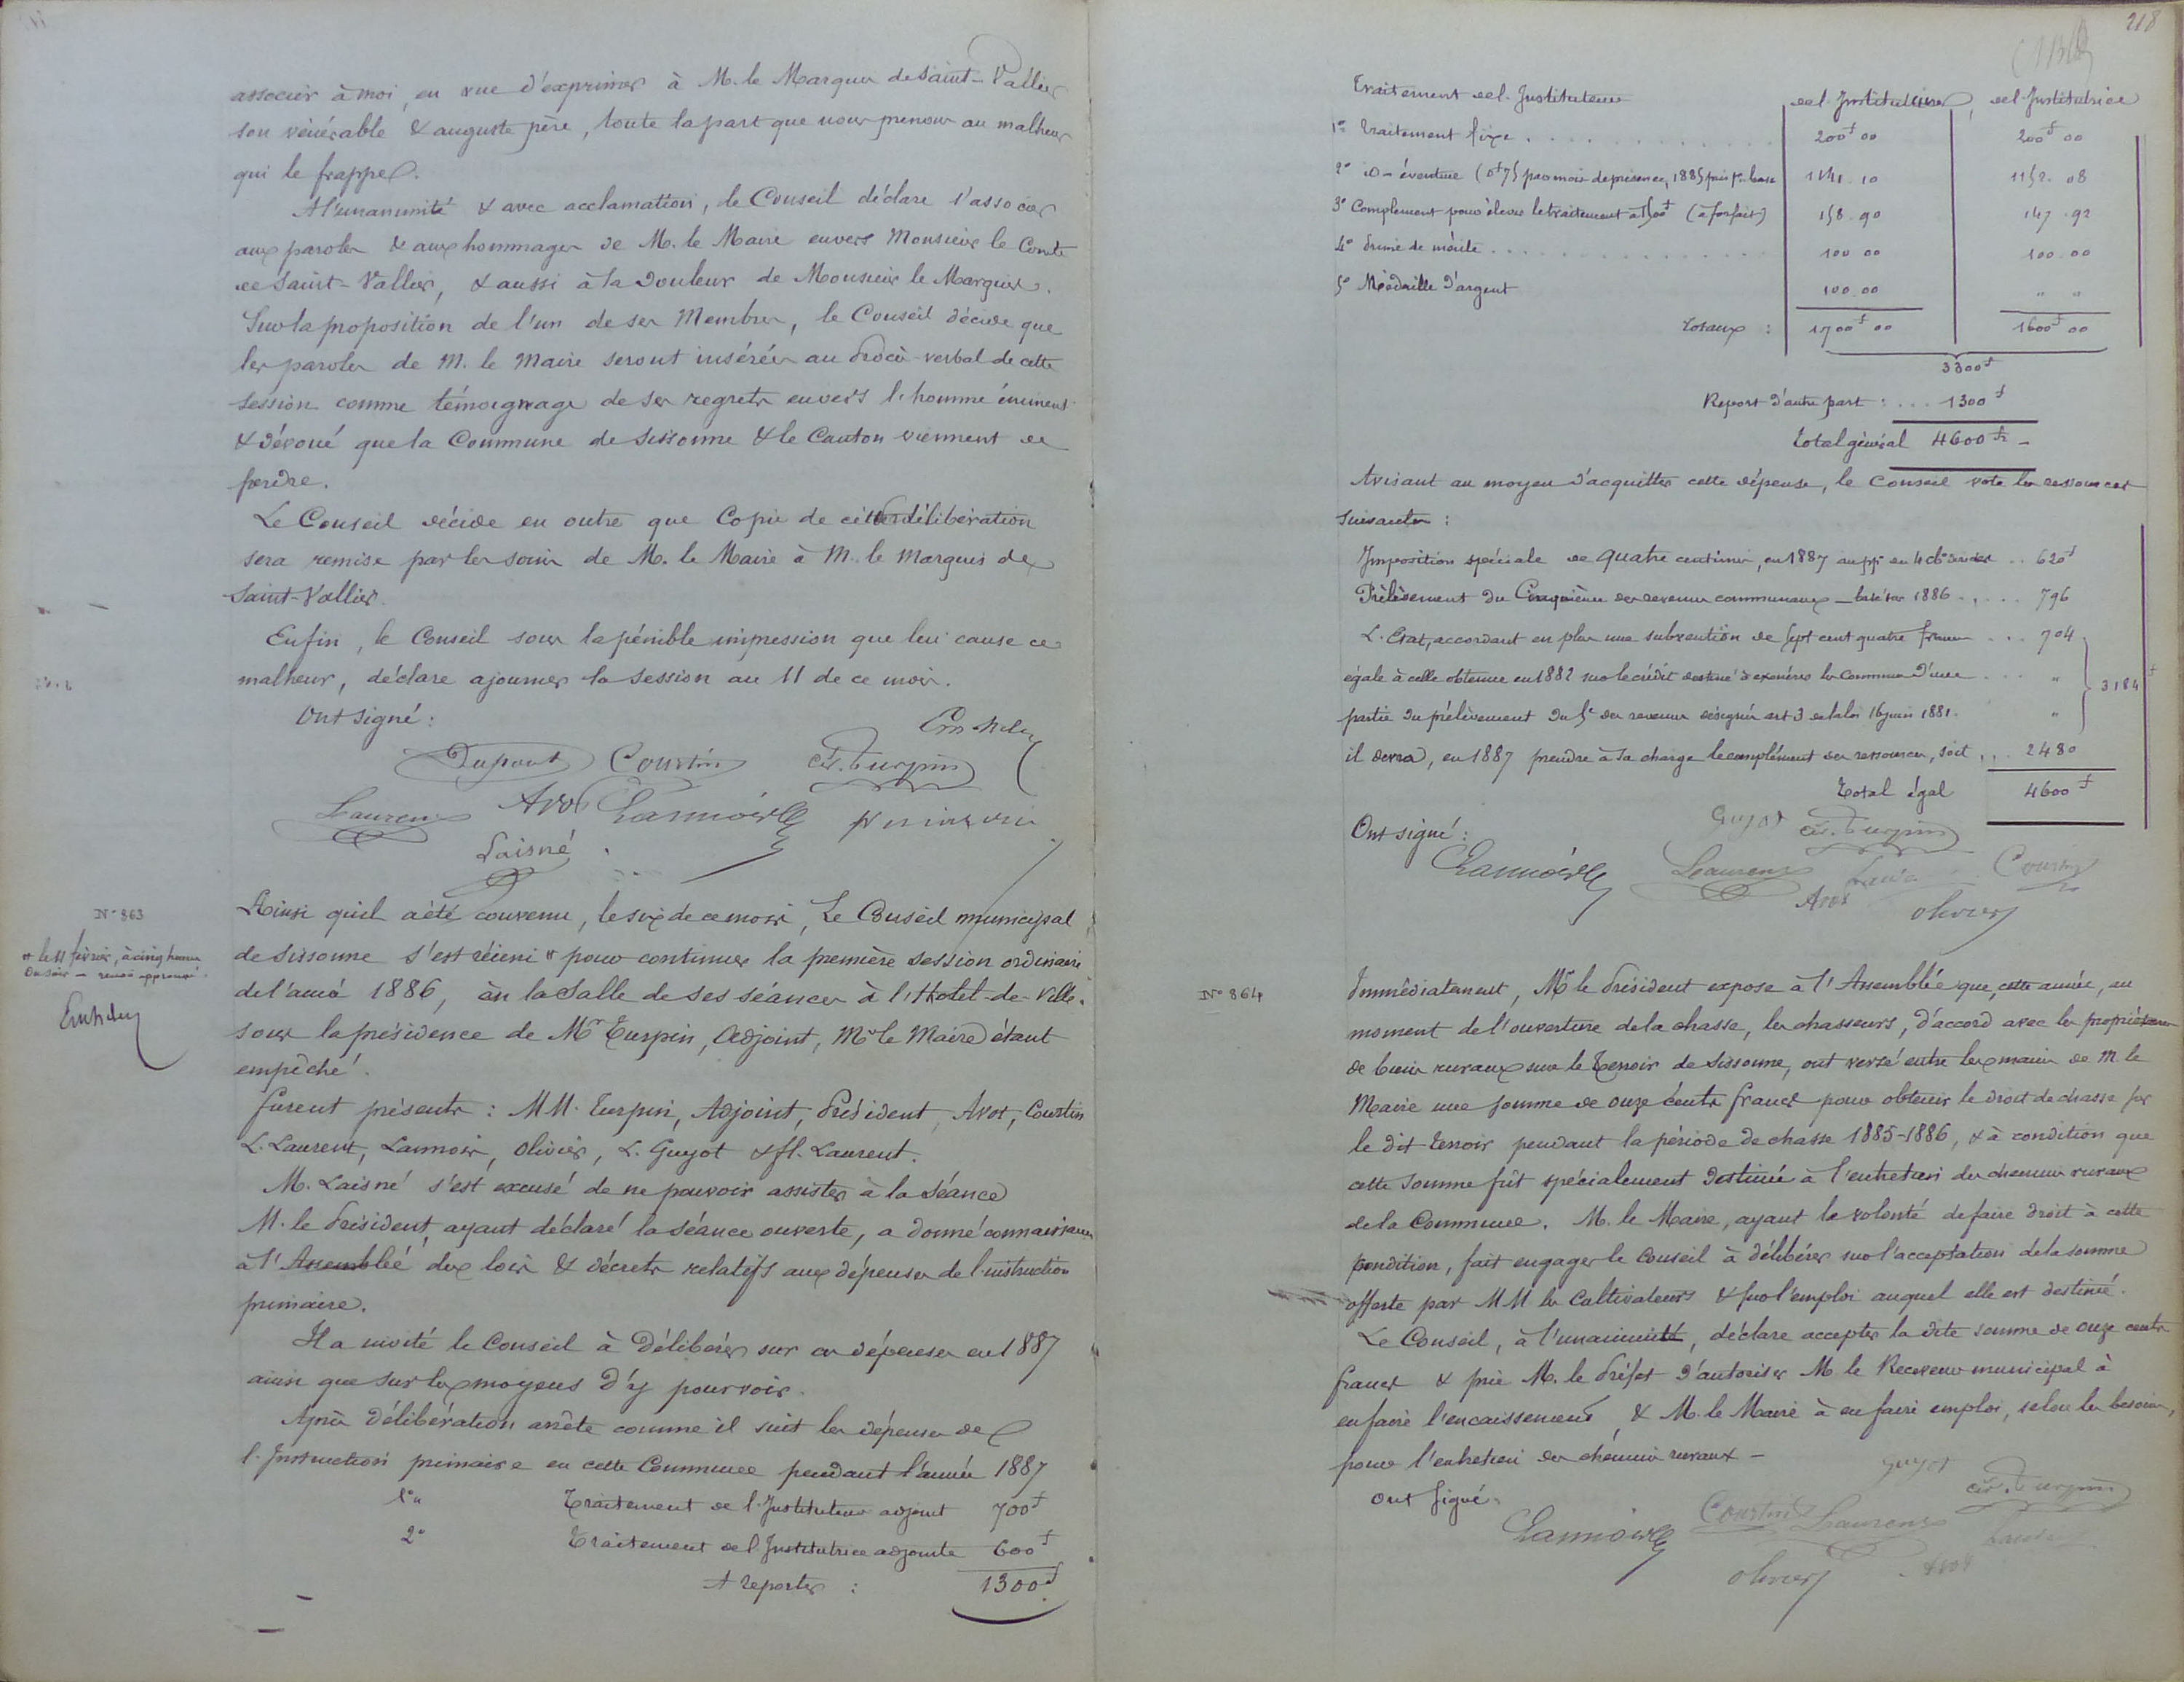 associer à moi, en vue d'exprimer à M. le Marquis de Saint-Vallier
son vénérable & auguste père, toute la part que nous prenons au malheur
qui le frappe.
A l'unanimité & avec acclamation, le Conseil déclare s'associer
aux paroles & aux hommages de M. le Maire envers Monsieur le Comte
de Saint-Vallier, & aussi à la douleur de Monsieur le Marquis.
Sur la proposition de l'un de ses Membres, le Conseil décide que
les paroles de M. le Maire seront insérées au Procès-verbal de cette
session comme témoignage de ses regrets envers l'homme éminent
& dévoué que la Commune de Sissonne & le Canton viennent de
perdre.
Le Conseil décide en outre que Copie de cette délibération
sera remise par les soins de M. le Maire à M. le Marquis de
Saint-Vallier.
Enfin, le Conseil sous la pénible impression que lui cause ce
malheur, déclare ajourner la session au 11 de ce mois.
Ont signé :
Dupont Courtin Cés. Turpin
Laurent Avot Lannois
Laisné
N° 863
+ le 11 février, à cinq heures
du soir - renvoi approuvé.
Ainsi qu'il a été convenu, le six de ce mois, Le Conseil municipal
de Sissonne s'est réuni + pour continuer la première session ordinaire
de l'année 1886, en la Salle de ses séances à l'Hotel-de-Ville.
sous la présidence de Mr Turpin, Adjoint, Mr le Maire étant
empêché.
furent présents : MM. Turpin, Adjoint, Président, Avot, Courtin
L. Laurent, Lannois, Olivier, L. Guyot & fl. Laurent.
M. Laisné s'est excusé de ne pouvoir assister à la Séance
M. le Président, ayant déclaré la séance ouverte, a donné connaissance
à l'Assemblée des lois & décrets relatifs aux dépenses de l'instruction
primaire.
Il a invité le Conseil à Délibérer sur ces dépenses en 1887
ainsi que sur les moyens d'y pourvoir.
Après délibération arrête comme il suit les dépenses de
l'Instruction primaire en cette Commune pendant l'année 1887
1° Traitement de l'Instituteur adjoint 700f
2° Traitement de l'Institutrice adjointe 600f
A reporter : 1300f
218
Traitement de l'Instituteur de l'Instituteur de l'Institutrice
1° Traitement fixe . . . 200f 00 200f 00
2° id - éventuel (0f75 par mois de présence, 1885 pris pr. base 1141.10 1152.08
3° Complément pour élever le traitement à 1500f (à forfait) 158.90 147.92
4° Prime de mérite . . . 100 00 100.00
5° Médaille d'argent 100.00 " "
Totaux : 1700f 00 1600f 00
3300f
Report d'autre part : . . . 1300f
Total général 4600f -
Avisant au moyen d'acquitter cette dépense, le Conseil vote les ressources
suivantes :
Imposition spéciale de quatre centimes, en 1887 au ppl des 4 cb directes . . 620f
Prélèvement du Cinquième des revenus communaux - basé sur 1886 . . . 796
L'Etat, accordant en plus une subvention de sept cent quatre francs . . . 704
égale à celle obtenue en 1882 sur le crédit destiné à exonérer les communes d'une . . . "
partie du prélèvement du 5e des revenus désignés art 3 de la loi 16 juin 1881. "
3184f
il devra, en 1887 prendre à sa charge le complément des ressources, soit . . . 2480
Total égal 4600f
Ont signé :
Guyot Cés. Turpin
Lannois Laurent Courtin
Avot Olivier
N° 864
Immédiatement, Mr le Président expose à l'Assemblée que, cette année, au
moment de l'ouverture de la chasse, les chasseurs, d'accord avec les propriétaires
de biens ruraux sur le Terroir de Sissonne, ont versé entre les mains de M. le
Maire une somme de onze cents francs pour obtenir le droit de chasse sur
le dit Terroir pendant la période de chasse 1885-1886, & à condition que
cette somme fût spécialement destinée à l'entretien des chemins ruraux
de la Commune. M. le Maire, ayant la volonté de faire droit à cette
condition, fait engager le Conseil à délibérer sur l'acceptation de la somme
offerte par MM les Cultivateurs & sur l'emploi auquel elle est destinée.
Le Conseil, à l'unanimité, déclare accepter la dite somme de onze cents
francs & prie M. le Préfet d'autoriser M. le Receveur municipal à
en faire l'encaissement, & M. le Maire à en faire emploi, selon les besoins,
pour l'entretien des chemins ruraux -
Ont signé.
Guyot
Cés. Turpin
Lannois Courtin Laurent
Olivier Avot